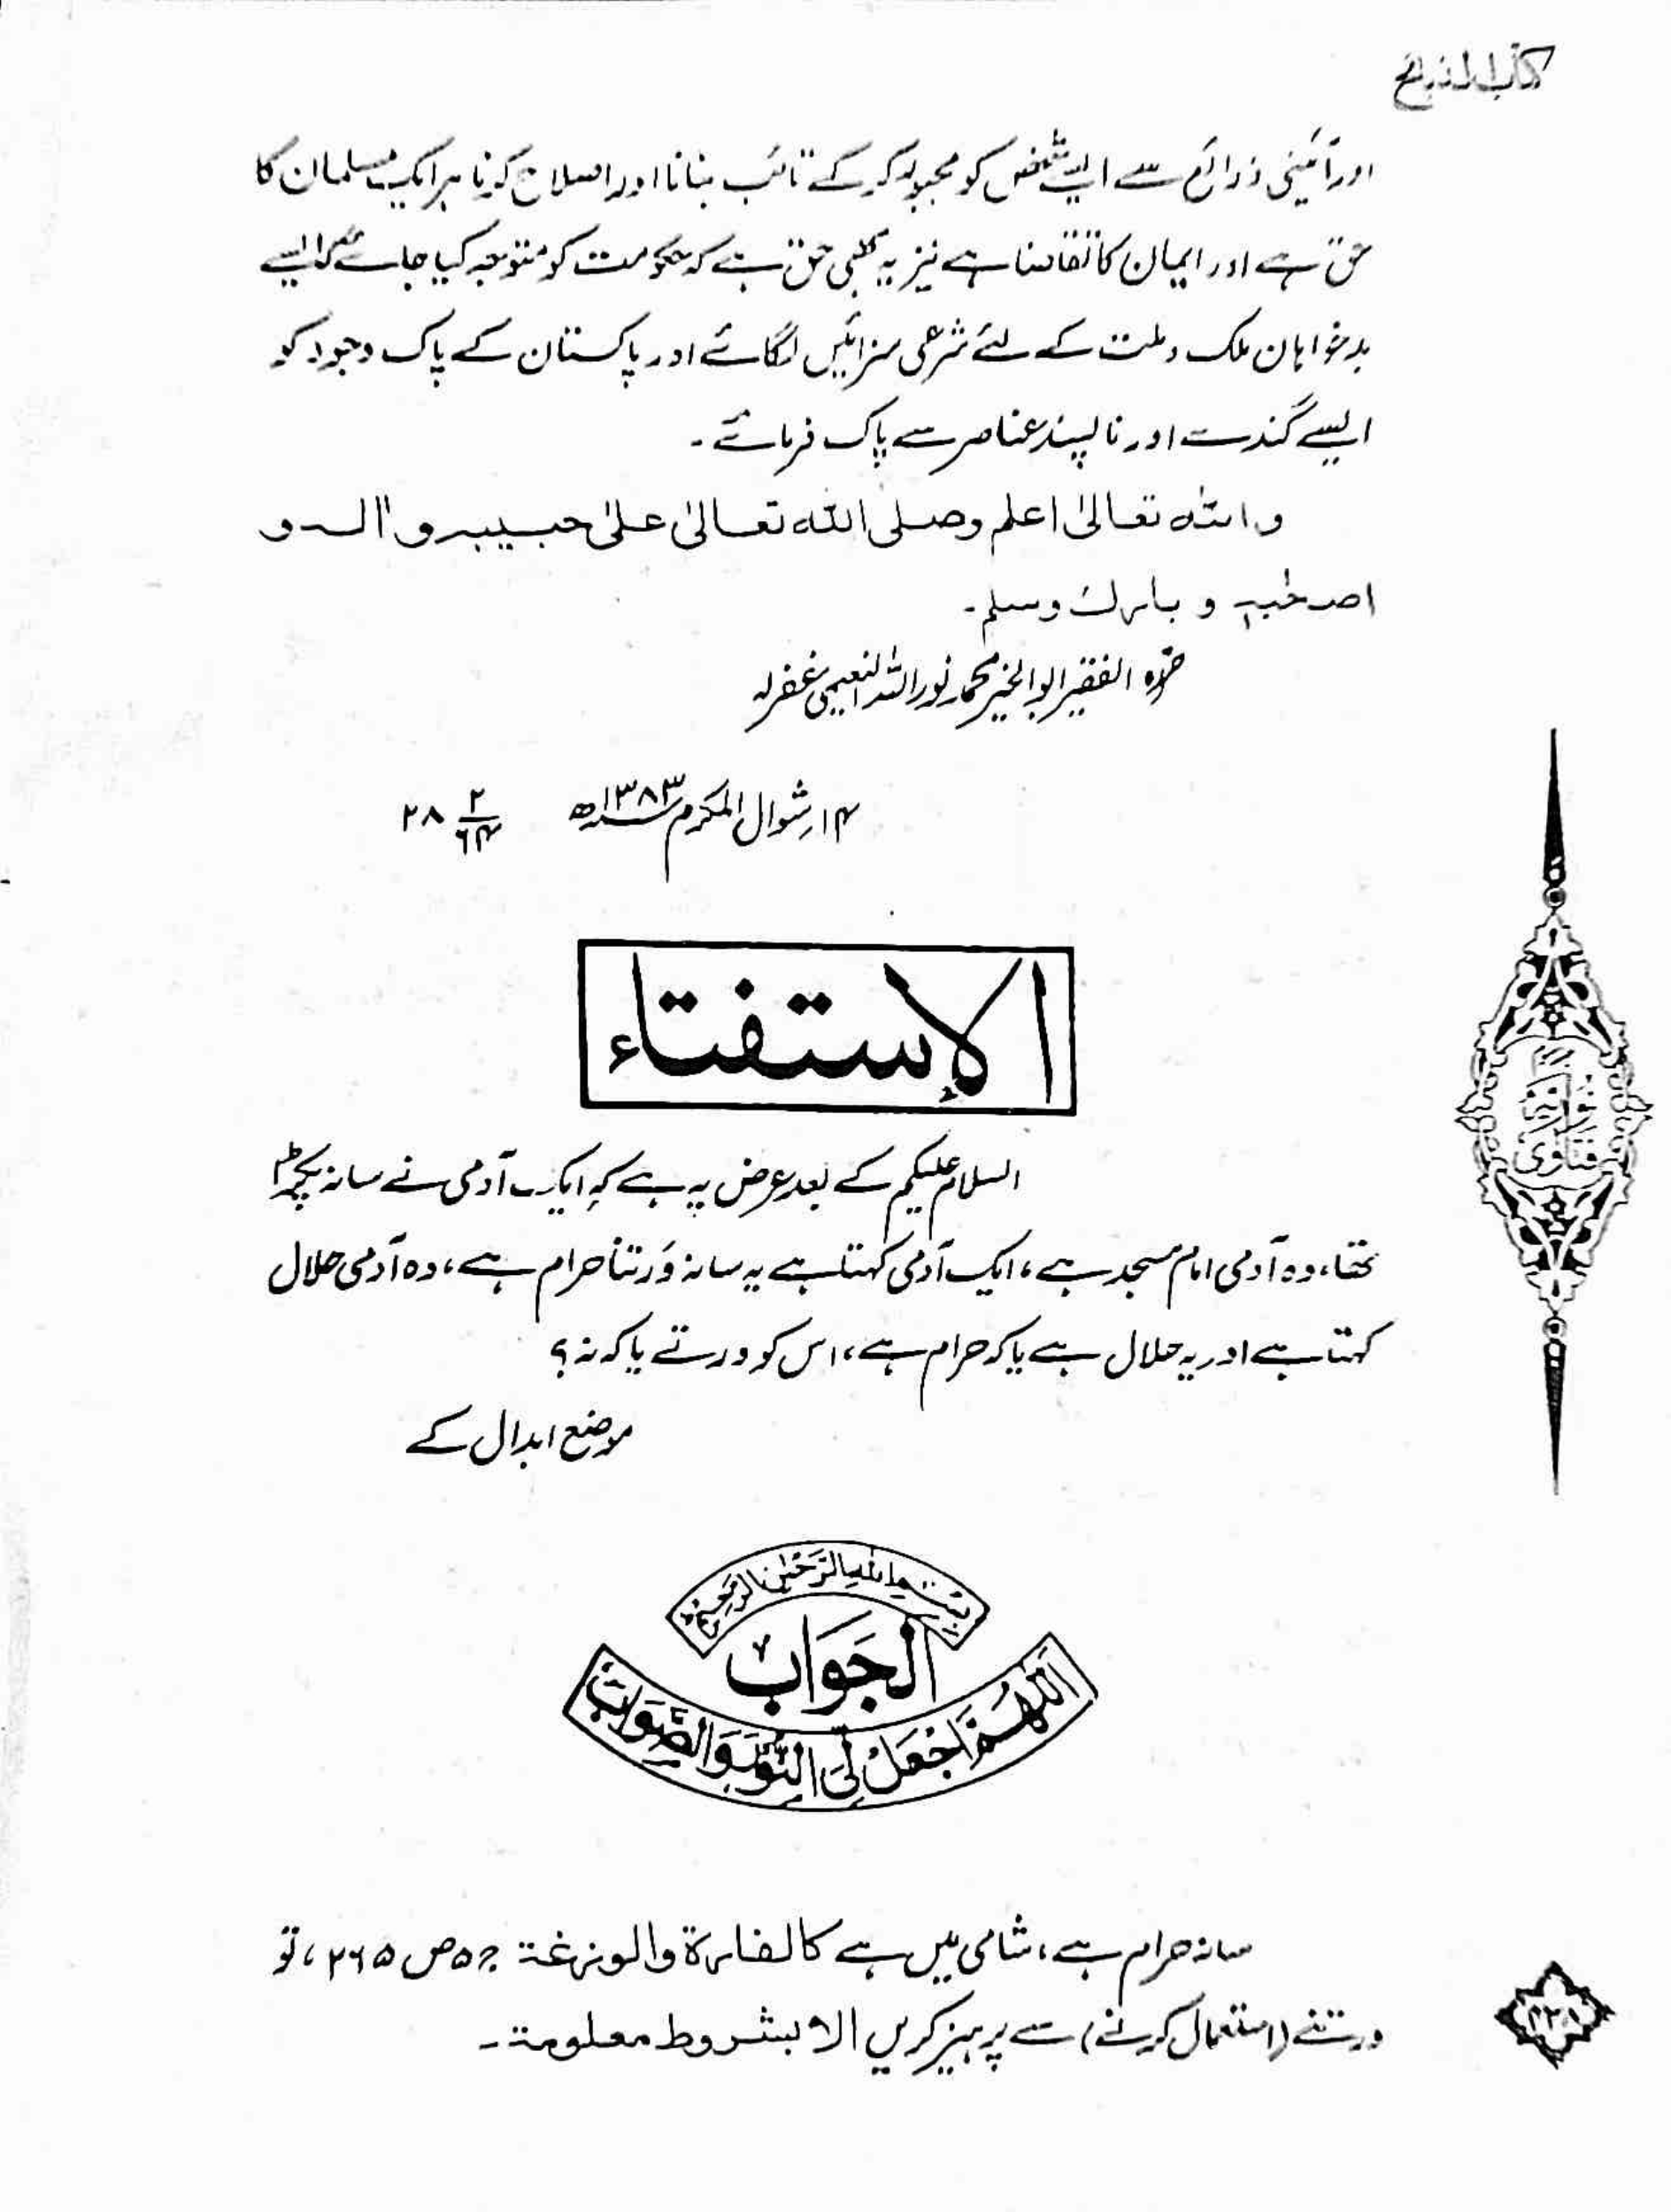 کتاب الذبائح
اور آئینی ذرائع سے ایسے شخص کو مجبور کر کے تائب بنانا اور اصلاح کرنا ہر ایک مسلمان کا
حق ہے اور ایمان کا تقاضا ہے نیز یہ بھی حق ہے کہ حکومت کو متوجہ کیا جائے کہ ایسے
بدخواہان ملک و ملت کے لئے شرعی سزائیں لگائے اور پاکستان کے پاک وجود کو
ایسے گندے اور ناپسند عناصر سے پاک فرمائے۔
واللہ تعالیٰ اعلم وصلی اللہ تعالیٰ علیٰ حبیبہ واٰلہ و
اصحٰبہٖ و بارك وسلم۔
حررہ الفقیر ابوالخیر محمد نور اللہ النعیمی غفرلہ
۱۴ شوال المکرم ۱۳۸۳ھ ۲۸ ۲ ۶۴
الإستفتاء
السلام علیکم کے بعد عرض یہ ہے کہ ایک آدمی نے سانہ پکڑا
تھا، وہ آدمی امام مسجد ہے، ایک آدمی کہتا ہے یہ سانہ وَرتنا حرام ہے، وہ آدمی حلال
کہتا ہے اور یہ حلال ہے یا کہ حرام ہے، اس کو ورتے یا کہ نہ؟
موضع ابدال کے
فتاویٰ نوریہ
بسم اللہ الرحمٰن الرحیم
الجَوَاب
اَللّٰهُمَّ اجْعَلْ لِیَ النُّوْرَ وَالصَّوَابَ
سانہ حرام ہے، شامی میں ہے کالفارۃ والوزغۃ ج۵ ص ۲۶۵، تو
ورتنے (استعمال کرنے) سے پرہیز کریں الا بشروط معلومۃ۔